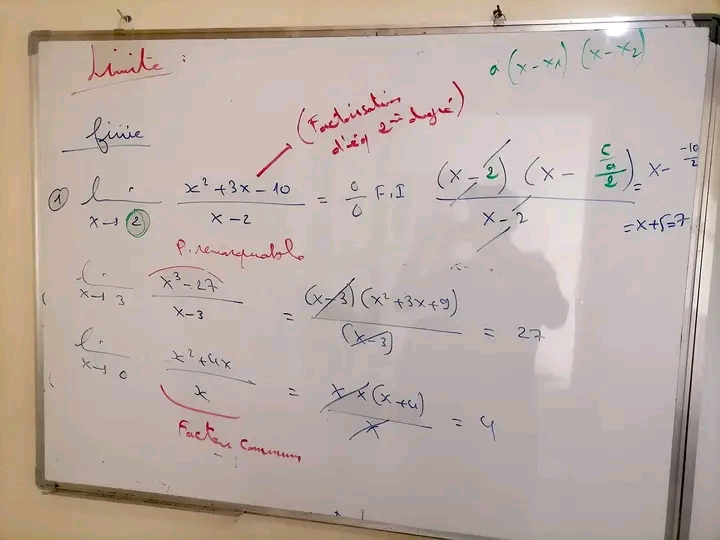 Limite :
a (x-x1) (x-x2)
finie
(Factorisation
d'éq 2nd degré)
① lim x→2 (x²+3x-10)/(x-2) = 0/0 F.I ((x-2) (x - (c/a)/2))/(x-2) = x - (-10)/2
= x+5=7
P. remarquable
lim x→3 (x³-27)/(x-3) = ((x-3)(x²+3x+9))/((x-3)) = 27
lim x→0 (x²+4x)/x = (x x(x+4))/x = 4
Facteur commun